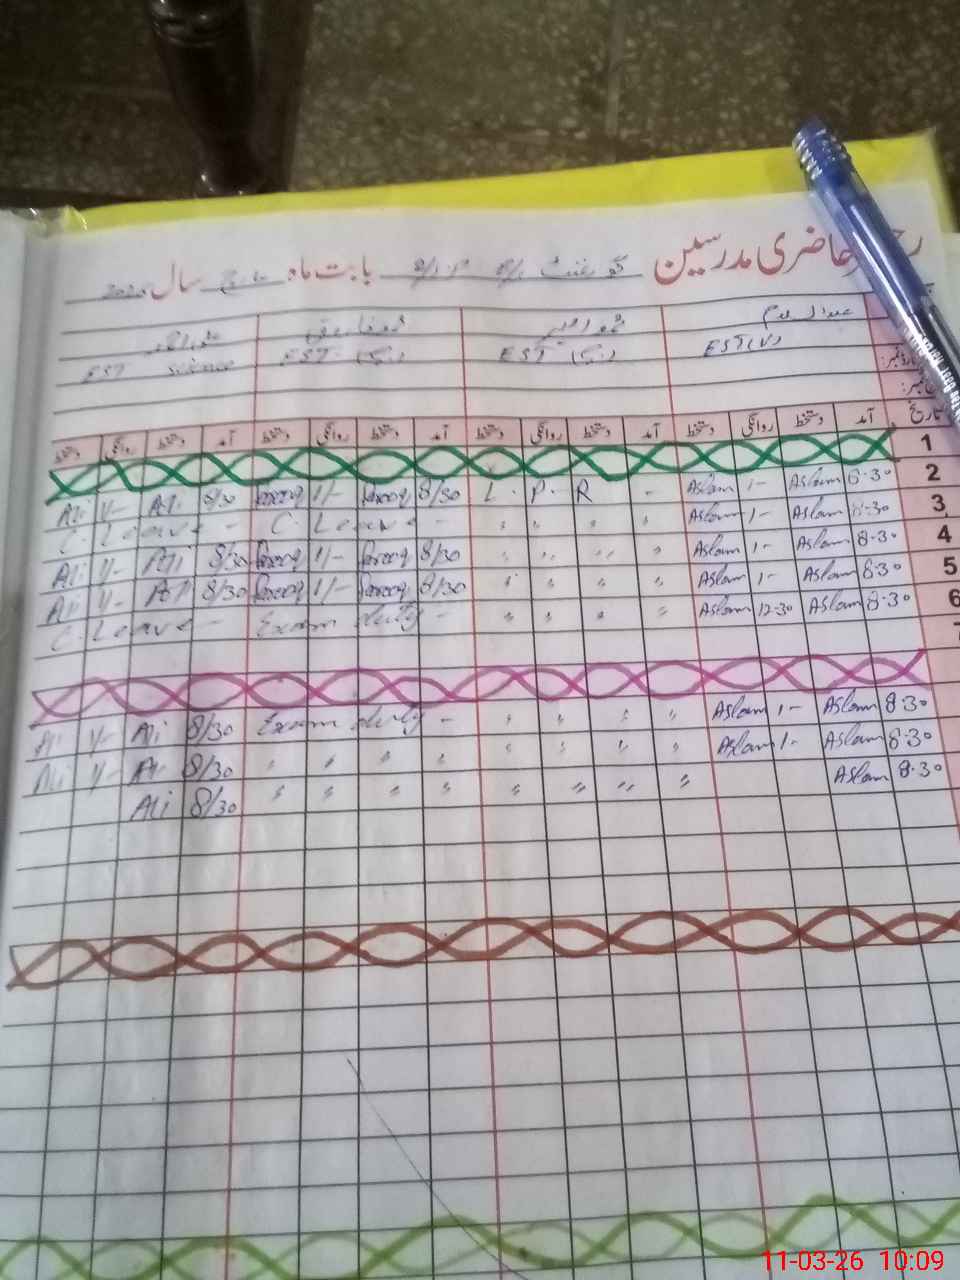 حاضری مدرسین گورنمنٹ بابت ماہ مارچ سال
EST(V) EST EST EST Science
آمد دستخط روانگی دستخط آمد دستخط روانگی دستخط آمد دستخط روانگی دستخط آمد دستخط روانگی دستخط تاریخ
1
Ali 1/- Ali 8/30 Farooq 1/- Farooq 8/30 L . P . R - Aslam 1- Aslam 8-30 2
C. Leave - C. Leave - " " " " Aslam 1- Aslam 8-30 3
Ali 1/- Ali 8/30 Farooq 1/- Farooq 8/30 " " " " Aslam 1- Aslam 8-30 4
Ali 1/- Ali 8/30 Farooq 1/- Farooq 8/30 " " " " Aslam 1- Aslam 8-30 5
C. Leave - Exam duty - " " " " Aslam 12-30 Aslam 8-30 6
7
Ali 1/- Ali 8/30 Exam duty - " " " " Aslam 1- Aslam 8-30
Ali 1/- Ali 8/30 " " " " " " " " Aslam 1- Aslam 8-30
Ali 8/30 " " " " " " " " Aslam 8-30
11-03-26 10:09